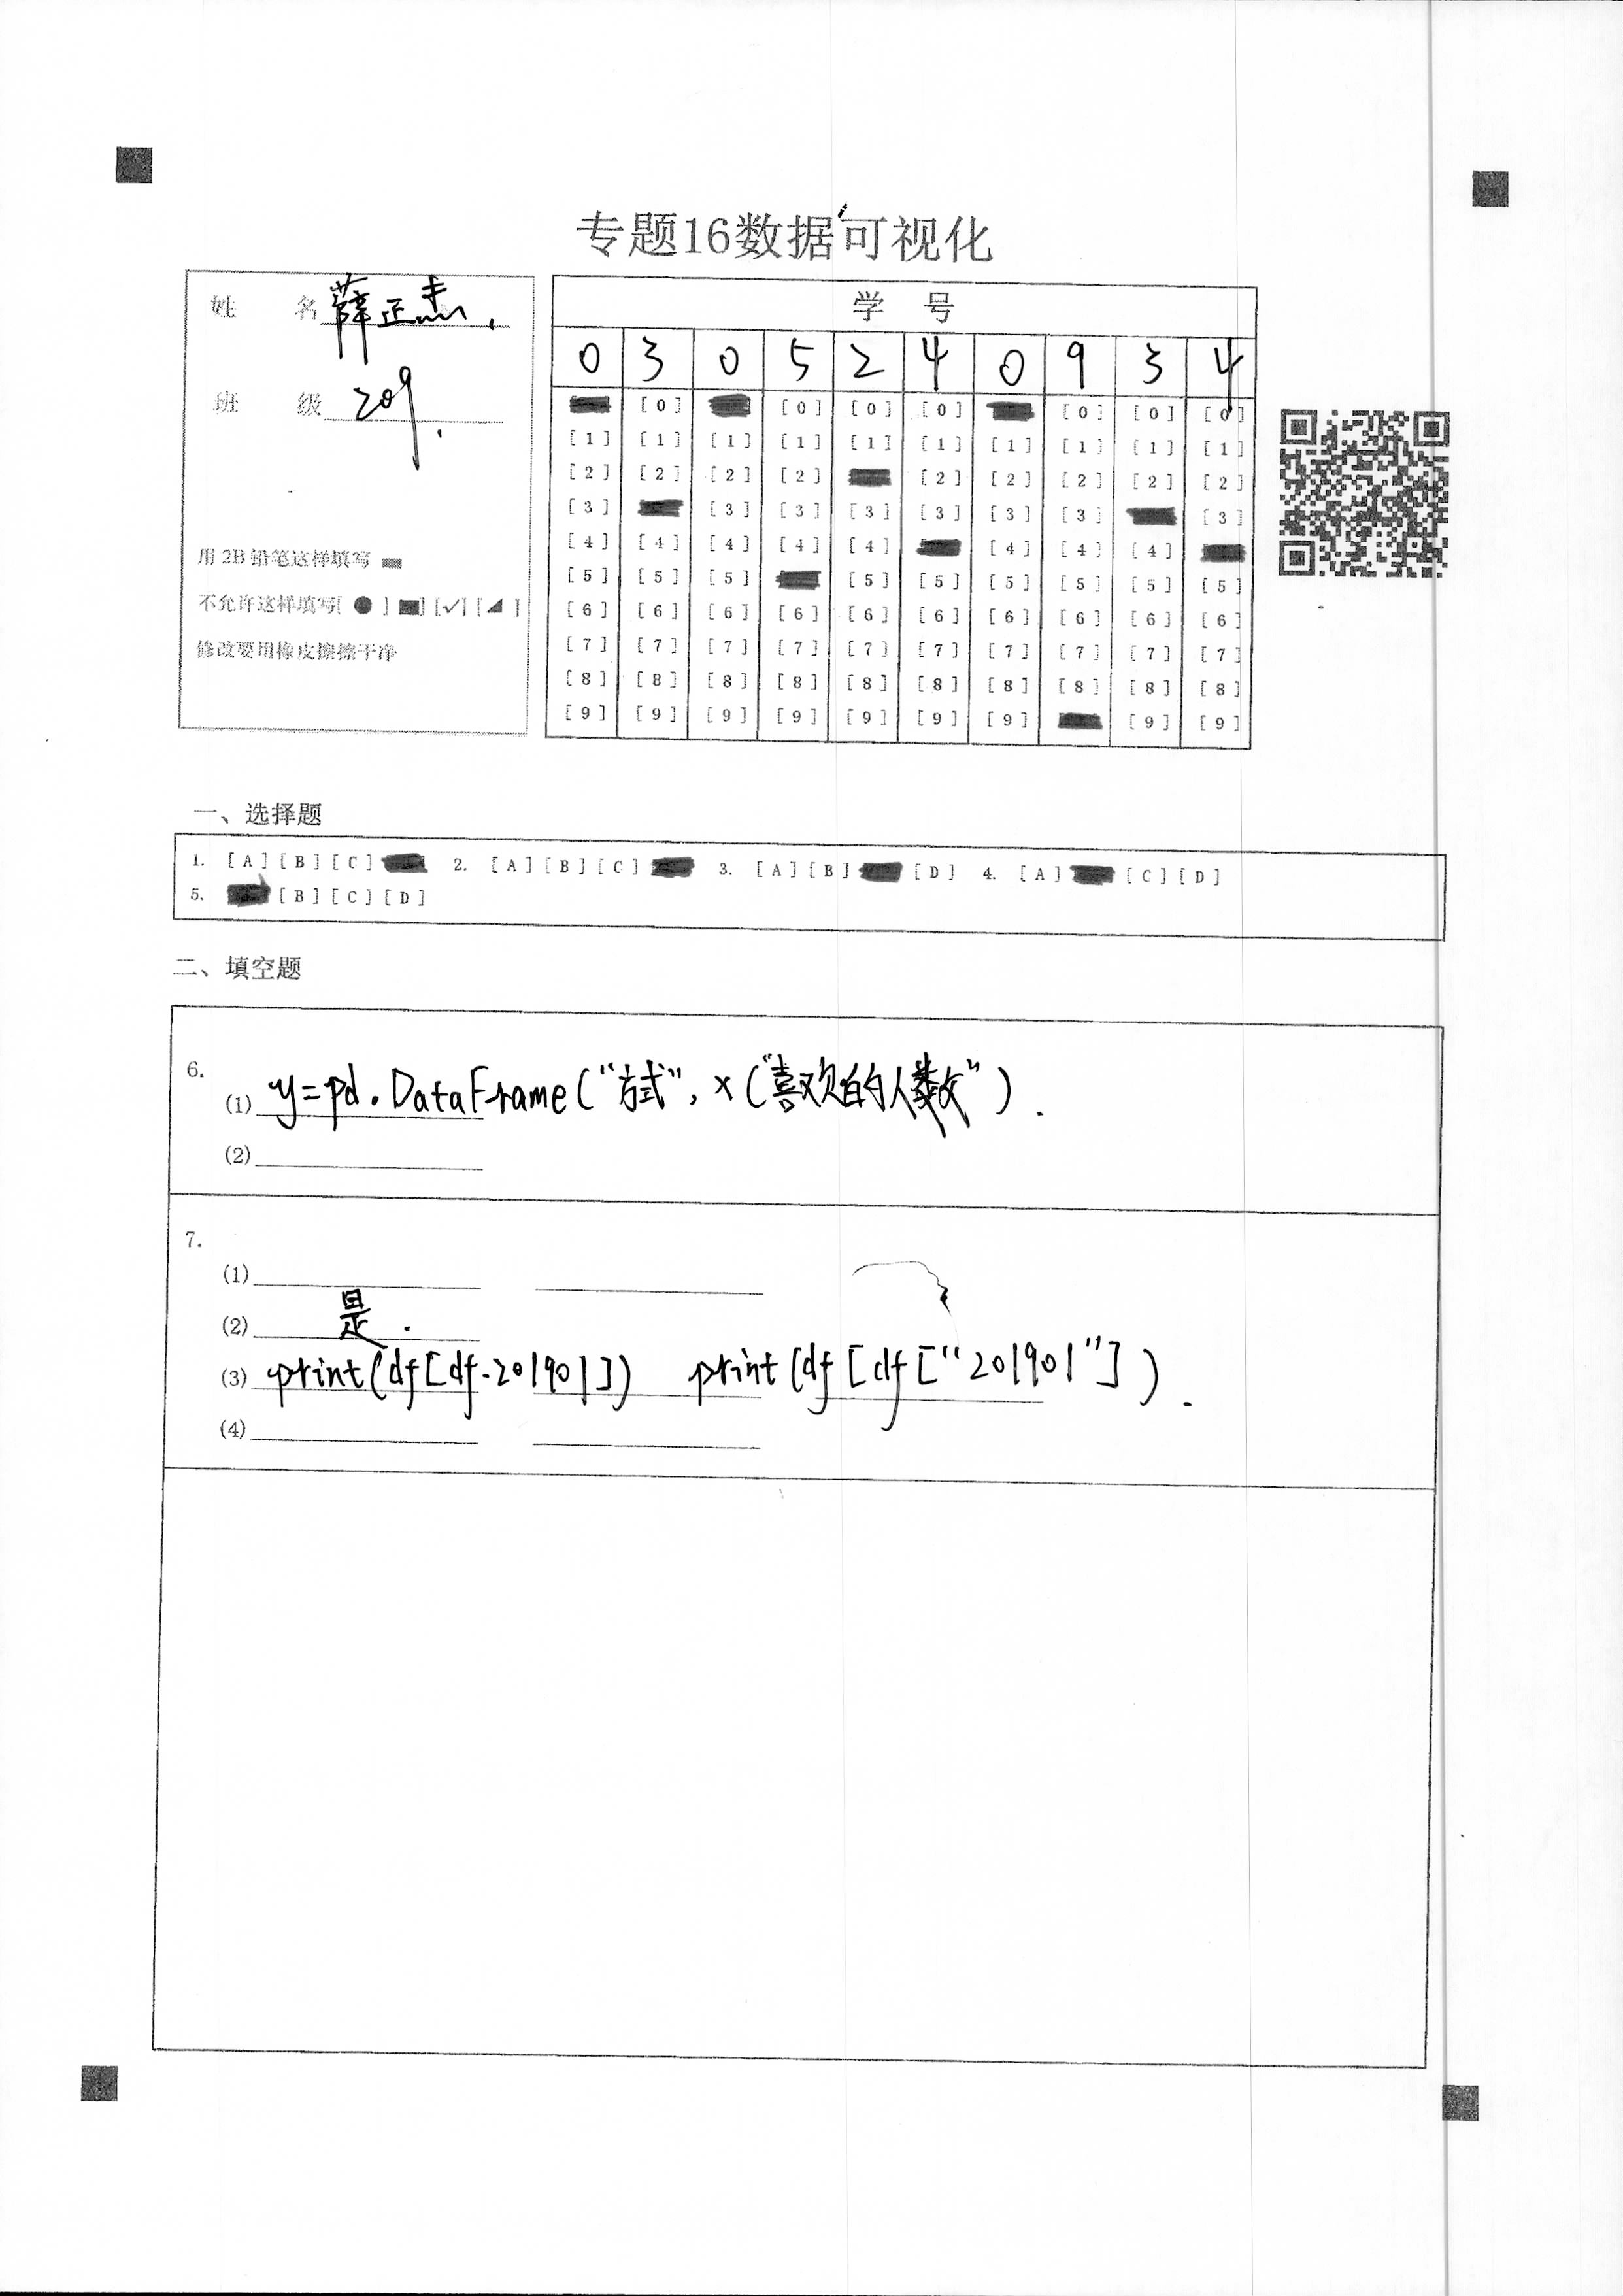 专题16数据可视化
姓 名 薛正杰.
班 级 209.
用 2B 铅笔这样填写
不允许这样填写[ ● ] [✓] [ ]
修改要用橡皮擦擦干净
学 号
0 3 0 5 2 4 0 9 3 4
[0] [0] [0] [0] [0] [0] [0]
[1] [1] [1] [1] [1] [1] [1] [1] [1] [1]
[2] [2] [2] [2] [2] [2] [2] [2] [2]
[3] [3] [3] [3] [3] [3] [3] [3]
[4] [4] [4] [4] [4] [4] [4] [4]
[5] [5] [5] [5] [5] [5] [5] [5] [5]
[6] [6] [6] [6] [6] [6] [6] [6] [6] [6]
[7] [7] [7] [7] [7] [7] [7] [7] [7] [7]
[8] [8] [8] [8] [8] [8] [8] [8] [8] [8]
[9] [9] [9] [9] [9] [9] [9] [9] [9]
一、选择题
1. [A] [B] [C] 2. [A] [B] [C] 3. [A] [B] [D] 4. [A] [C] [D]
5. [B] [C] [D]
二、填空题
6.
(1) y=pd.DataFrame("方式", x("喜欢的人数").
(2)
7.
(1)
(2) 是.
(3) print(df[df.201901]) print(df[df["201901"]).
(4)